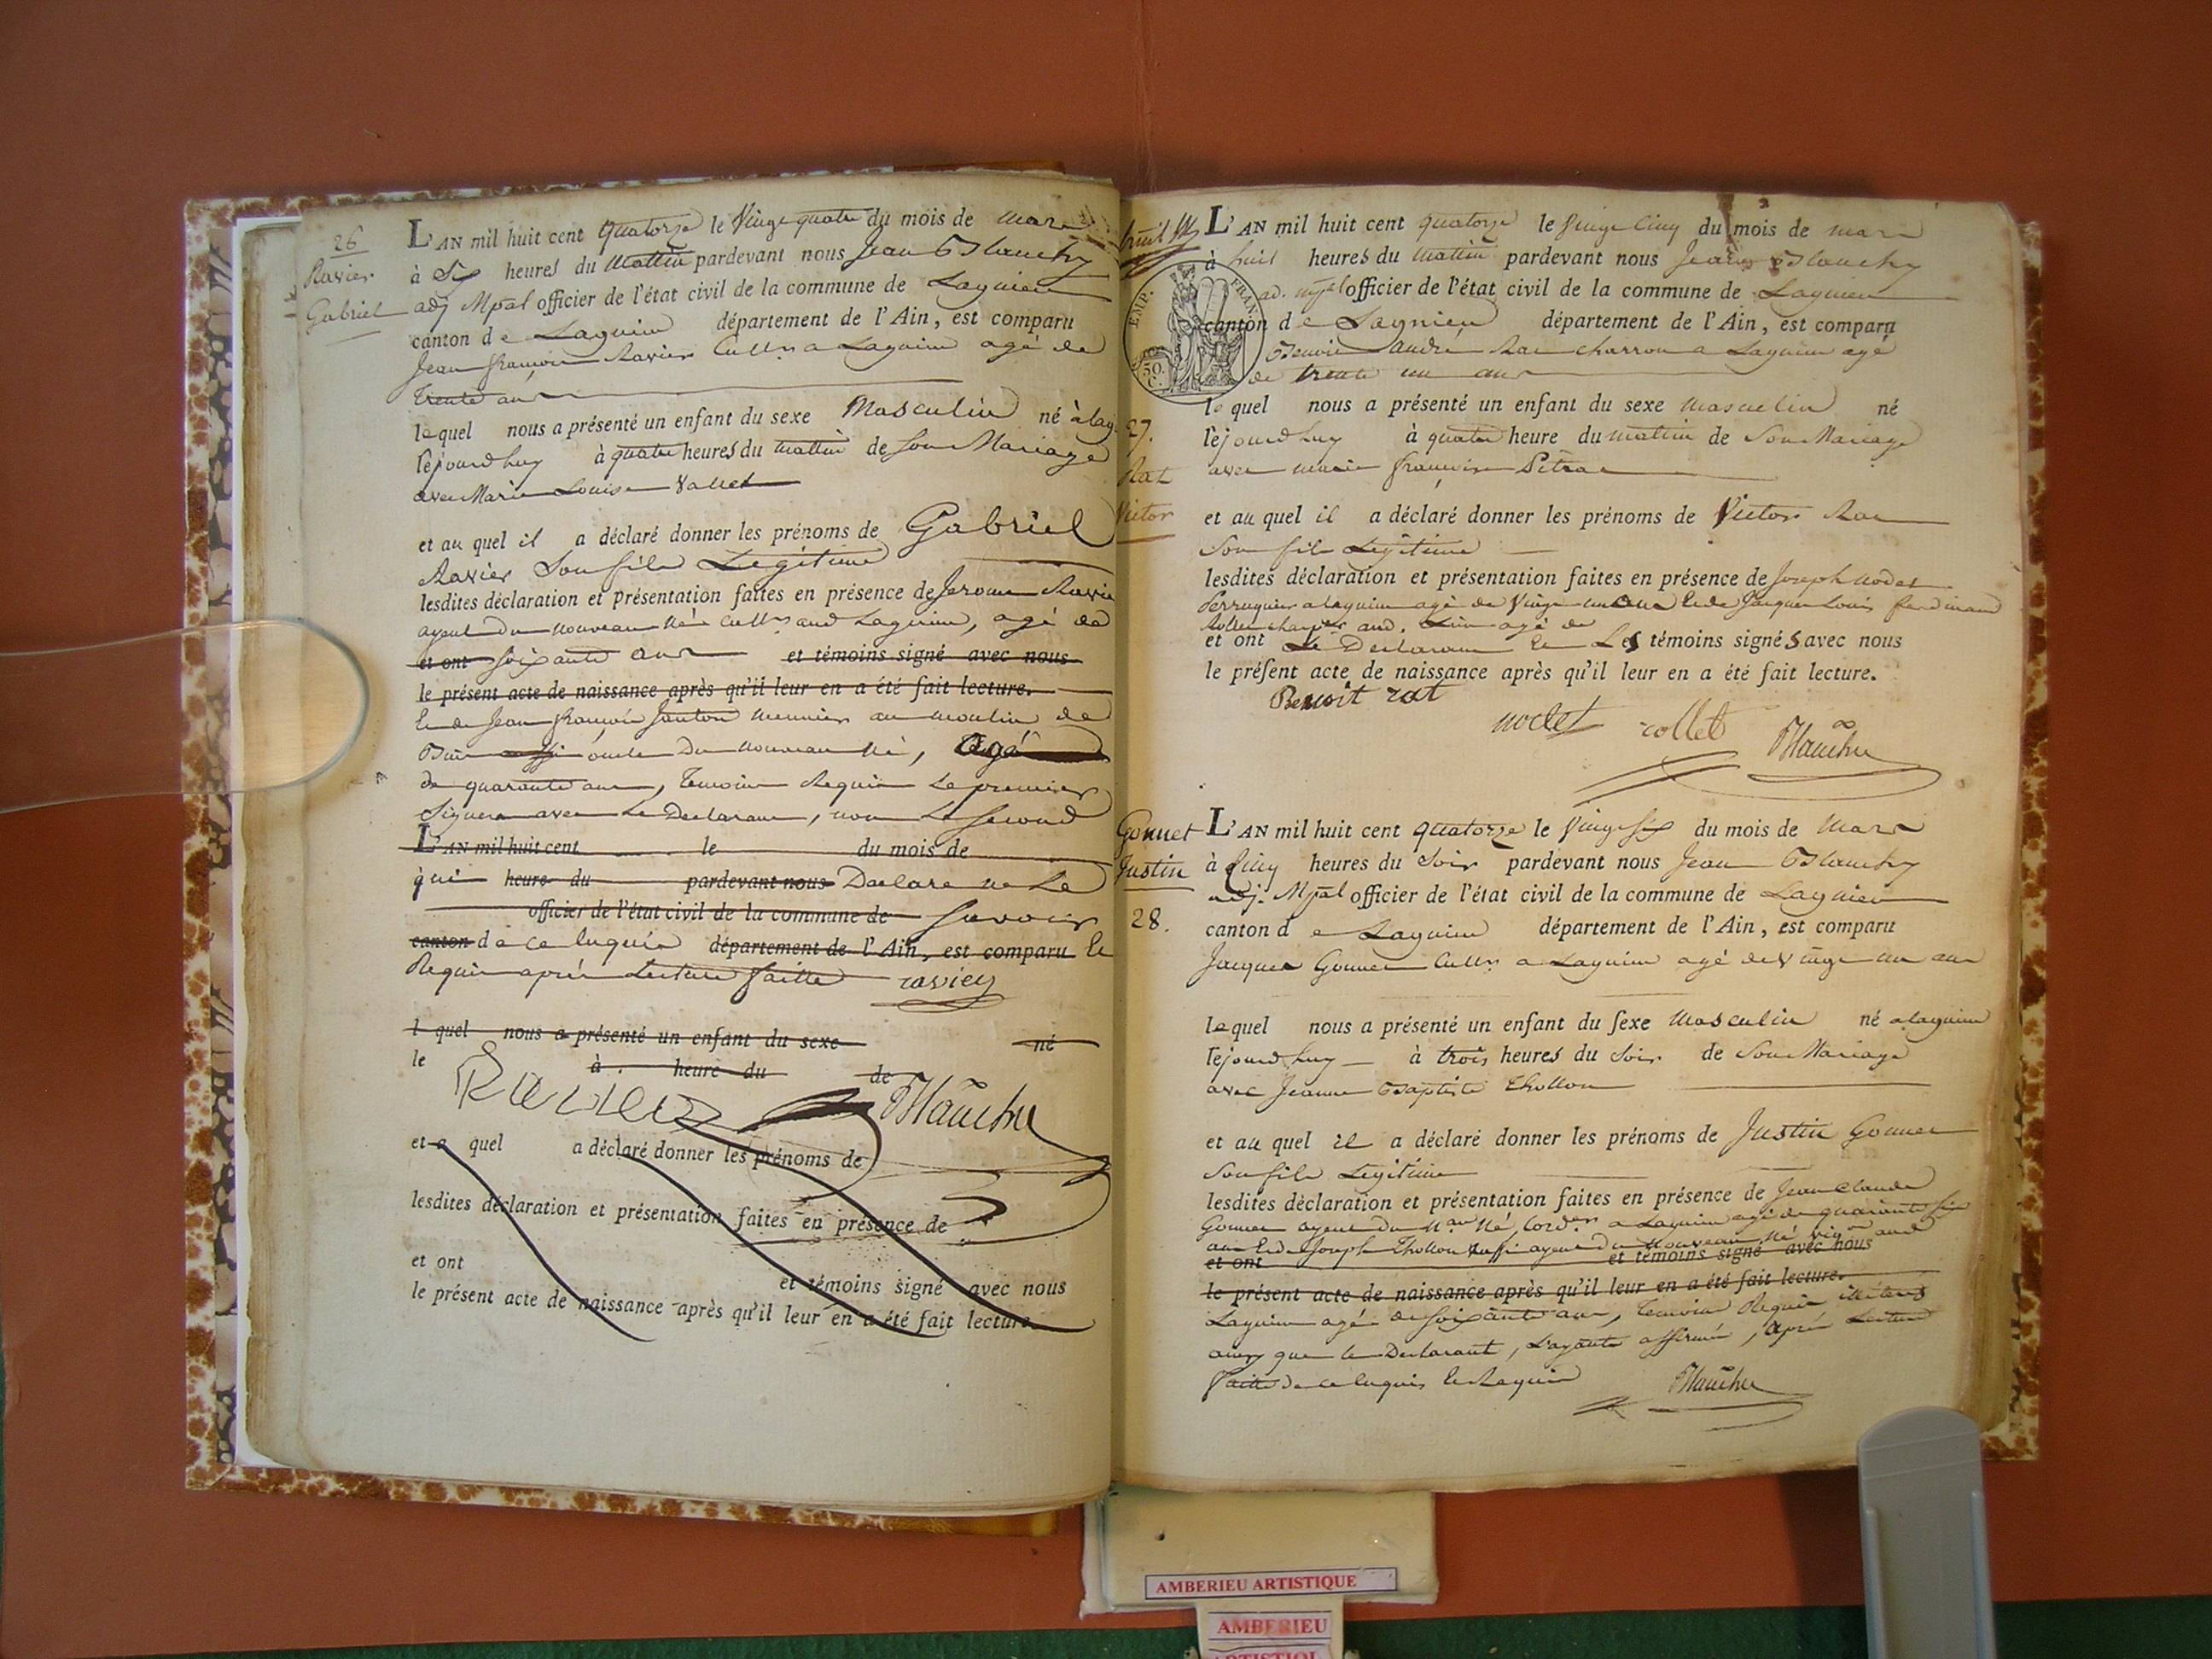 26
Ravier
Gabriel
L'AN mil huit cent quatorze le Vingt quatre du mois de mars
à Six heures du Mattin pardevant nous Jean Blanchy
adj Mpal officier de l'état civil de la commune de Lagnieu
canton de Lagnieu département de l'Ain, est comparu
Jean françois Ravier Cultr a Lagnieu agé de
trente ans
lequel nous a présenté un enfant du sexe Masculin né à lag.
lejourdhuy à quatre heures du mattin de Son Mariage
avec Marie Louise Vallet
et au quel il a déclaré donner les prénoms de Gabriel
Ravier Son fils Legitime
lesdites déclaration et présentation faites en présence de Jerome Ravier
ayeul du nouveau né cultr aud Lagnieu, agé de
et ont soixante ans et témoins signé avec nous
le présent acte de naissance après qu'il leur en a été fait lecture.
Et de Jean françois Janton meunier au moulin de
oncle du nouveau né, agé
de quarante ans, temoins Requis Le premier
Signera avec Le Declarant, non Le Second
L'AN mil huit cent le du mois de
qui heure du pardevant nous Declare ne Le
officier de l'état civil de la commune de Savoir
canton de ce Enquis département de l'Ain, est comparu Et
Requis après Lecture faitte ravier
l quel nous a présenté un enfant du sexe né
le à heure du de
Ravier Blanchy
et a quel a déclaré donner les prénoms de
lesdites déclaration et présentation faites en présence de
et ont et témoins signé avec nous
le présent acte de naissance après qu'il leur en a été fait lecture.
L'AN mil huit cent quatorze le Vingt Cinq du mois de mars
à huit heures du mattin pardevant nous Jean Blanchy
ad. mpal officier de l'état civil de la commune de Lagnieu
EMP. FRAN.
50.
C.
canton de Lagnieu département de l'Ain, est comparu
Benoit andré Rat charron a Lagnieu agé
de trente un ans
lequel nous a présenté un enfant du sexe masculin né
27.
Rat
Victor
lejourdhuy à quatre heure du mattin de Son Mariage
avec marie françoise
et au quel il a déclaré donner les prénoms de Victor Rat
Son fils Legitime
lesdites déclaration et présentation faites en présence de Joseph nodet
Perruquier a lagnieu agé de Vingt un ans Et de Jacques Louis ferdinand
aud. agé de
et ont Le Declarant Et Les témoins signés avec nous
le présent acte de naissance après qu'il leur en a été fait lecture.
Benoit rat
nodet rollet Blanchy
Gonnet
Justin
28.
L'AN mil huit cent quatorze le Vingt Six du mois de Mars
à Cinq heures du Soir pardevant nous Jean Blanchy
adj. Mpal officier de l'état civil de la commune de Lagnieu
canton de Lagnieu département de l'Ain, est comparu
Jacques Gonnet Cultr a Lagnieu agé de vingt un ans
lequel nous a présenté un enfant du sexe Masculin né a lagnieu
lejourdhuy à trois heures du Soir de Son Mariage
avec Jeanne Baptiste Thollon
et au quel il a déclaré donner les prénoms de Justin Gonnet
Son fils Legitime
lesdites déclaration et présentation faites en présence de Jean Claude
Gonnet ayeul du nau né, Cordr a Lagnieu agé de quarante six
ans Et de Joseph Thollon aussi ayeul du nouveau né vign aud
et ont et témoins signé avec nous
le présent acte de naissance après qu'il leur en a été fait lecture.
Lagnieu agé de soixante ans, temoins Requis illiterés
ainsy que le Declarant, L'ayants affirmé, après Lecture
faitte de ce Enquis Et Requis Blanchy
AMBERIEU ARTISTIQUE
AMBERIEU
ARTISTIQU